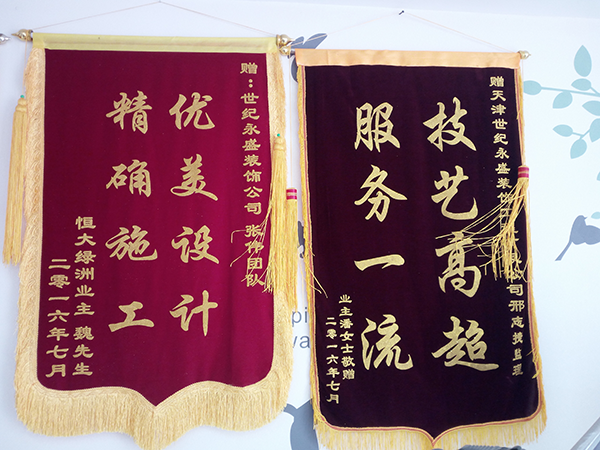 赠：世纪永盛装饰公司 张伟团队
优美设计
精确施工
恒大绿洲业主 魏先生
二零一六年七月
赠天津世纪永盛装饰
公司邢志
监理
技艺高超
服务一流
业主潘女士敬赠
二零一六年七月
pi
wa